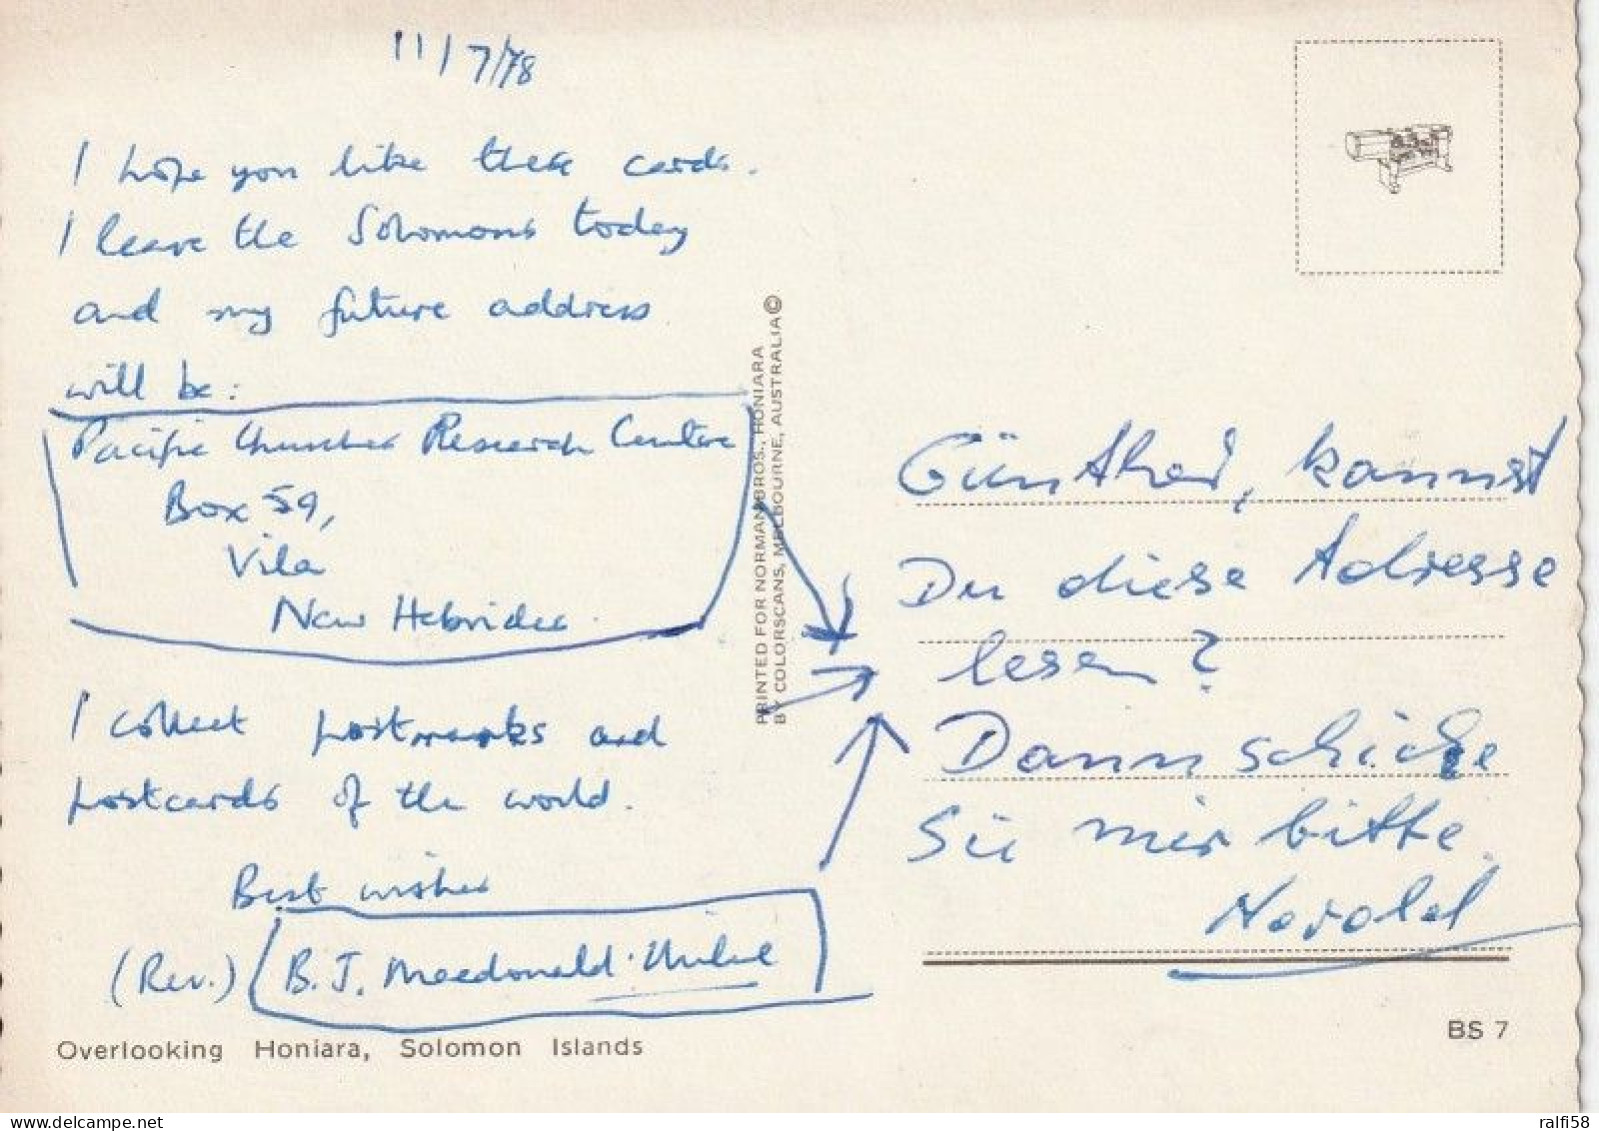 11/7/78
I hope you like these cards.
I leave the Solomons today
and my future address
will be:
Pacific Churches Research Centre
Box 59,
Vila
New Hebrides.
I collect postmarks and
postcards of the world.
Best wishes
(Rev.) B.J. Macdonald-Milne
Overlooking Honiara, Solomon Islands
PRINTED FOR NORMAN BROS., HONIARA
BY COLORSCANS, MELBOURNE, AUSTRALIA ©
Günther, kannst
Du diese Adresse
lesen?
Dann schicke
Sie mir bitte.
Harald
BS 7
www.delcampe.net
ralfi58